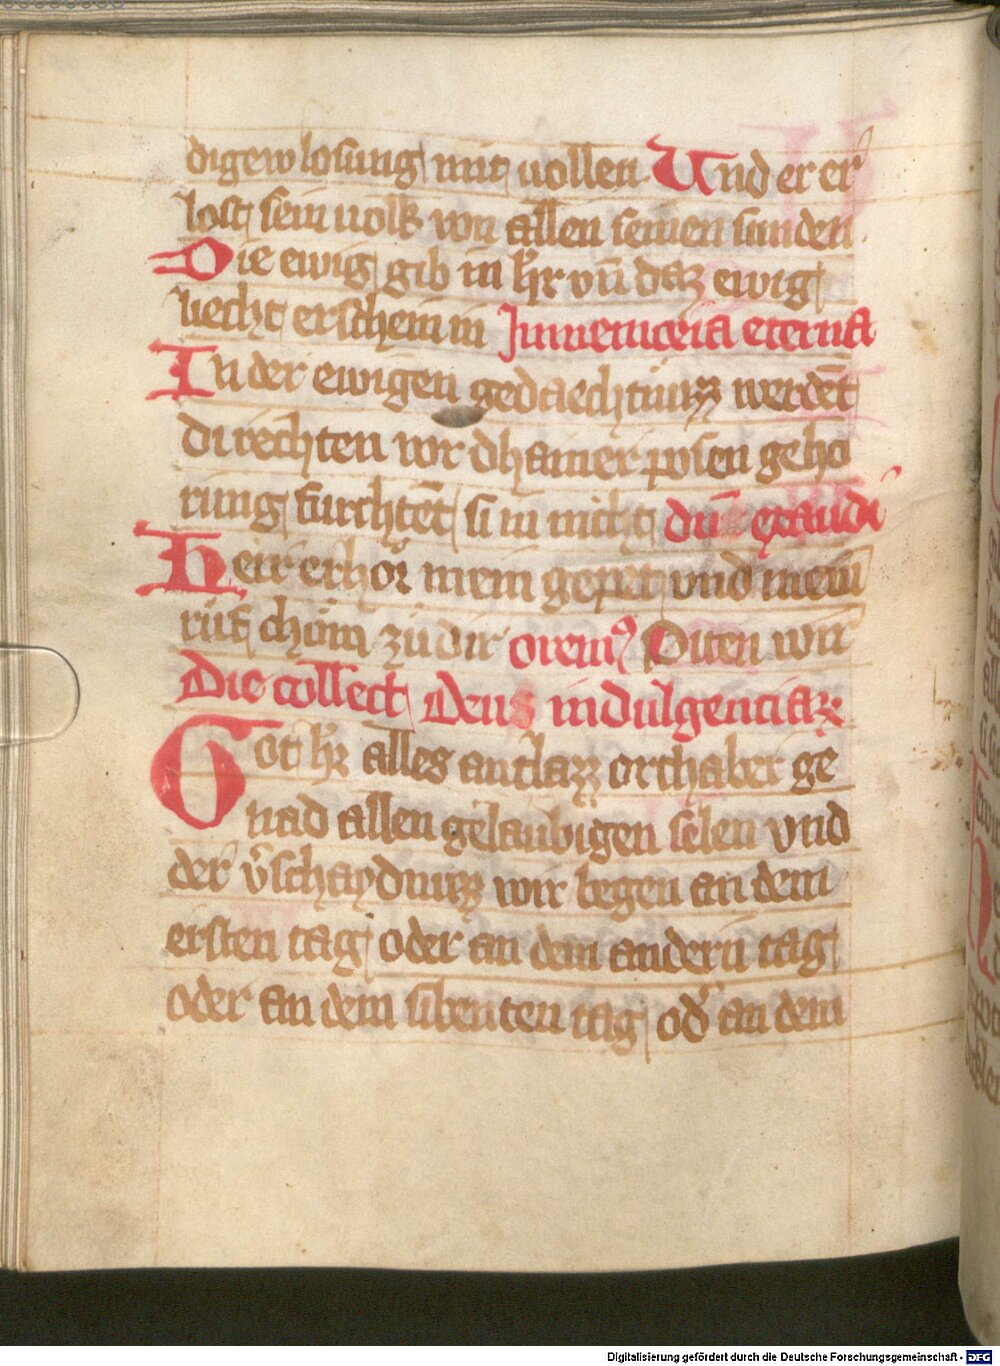 digew losung mit vollen Und er er
lost sein volk von allen seinen sunden
Die ewig gib in h̄r vn̄ daz ewig
liecht erschein in In memoria eterna
In der ewigen gedaechtnuzz werdēt
di rechten vor dhainer posen geho
rung furchtēt si in nicht dn̄e exaudi
Herr erhör mein gepet vnd mein
rüf chöm zu dir oremꝰ Piten wir
Die collect Deus indulgenciaꝝ
Got h̄r alles antlazz orthaber ge
nad allen gelaubigen selen vnd
der v̄schaydnuzz wir begen an dem
ersten tag oder an dem andern tag
oder an dem sibenten tag od̄ an dem
Digitalisierung gefördert durch die Deutsche Forschungsgemeinschaft - DFG